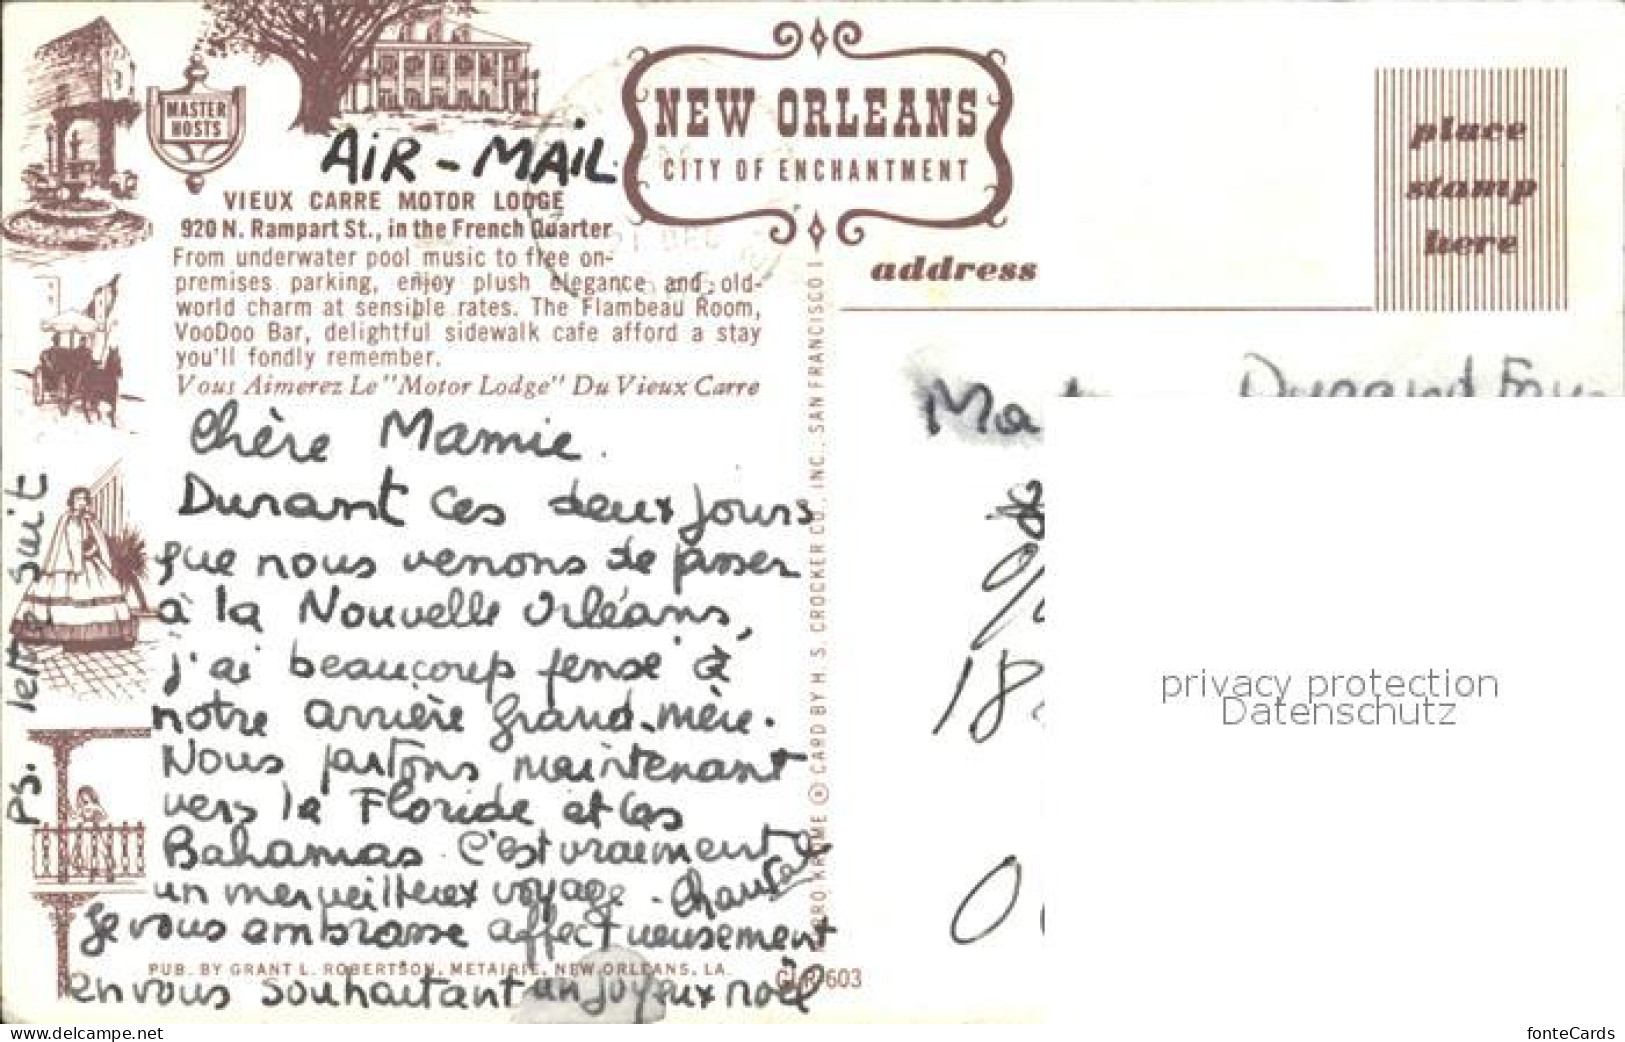 MASTER
HOSTS
AIR-MAIL
NEW ORLEANS
CITY OF ENCHANTMENT
place
stamp
here
VIEUX CARRE MOTOR LODGE
920 N. Rampart St., in the French Quarter
From underwater pool music to free on-
premises parking, enjoy plush elegance and old-
world charm at sensible rates. The Flambeau Room,
VooDoo Bar, delightful sidewalk cafe afford a stay
you'll fondly remember.
Vous Aimerez Le "Motor Lodge" Du Vieux Carre
address
Durand
Chère Mamie.
Durant ces deux jours
que nous venons de passer
à la Nouvelle Orléans,
j'ai beaucoup pensé à
notre arrière grand-mère.
Nous partons maintenant
vers la Floride et les
Bahamas. C'est vraiment
un merveilleux voyage. Chantal
Je vous embrasse affectueusement
en vous souhaitant un joyeux noël
PS. lettre suit
PUB. BY GRANT L. ROBERTSON, METAIRIE, NEW ORLEANS, LA.
603
CARD BY H. S. CROCKER CO., INC., SAN FRANCISCO 1
privacy protection
Datenschutz
www.delcampe.net
fonteCards